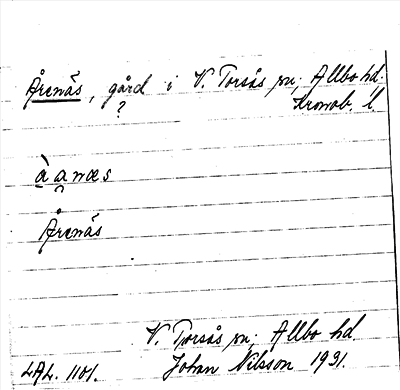 Årenäs, gård i V. Torsås sn; Allbo hd.
? Kronob. l.
àanæs
Årenäs
V. Torsås sn; Allbo hd.
LAL. 1101. Johan Nilsson 1931.